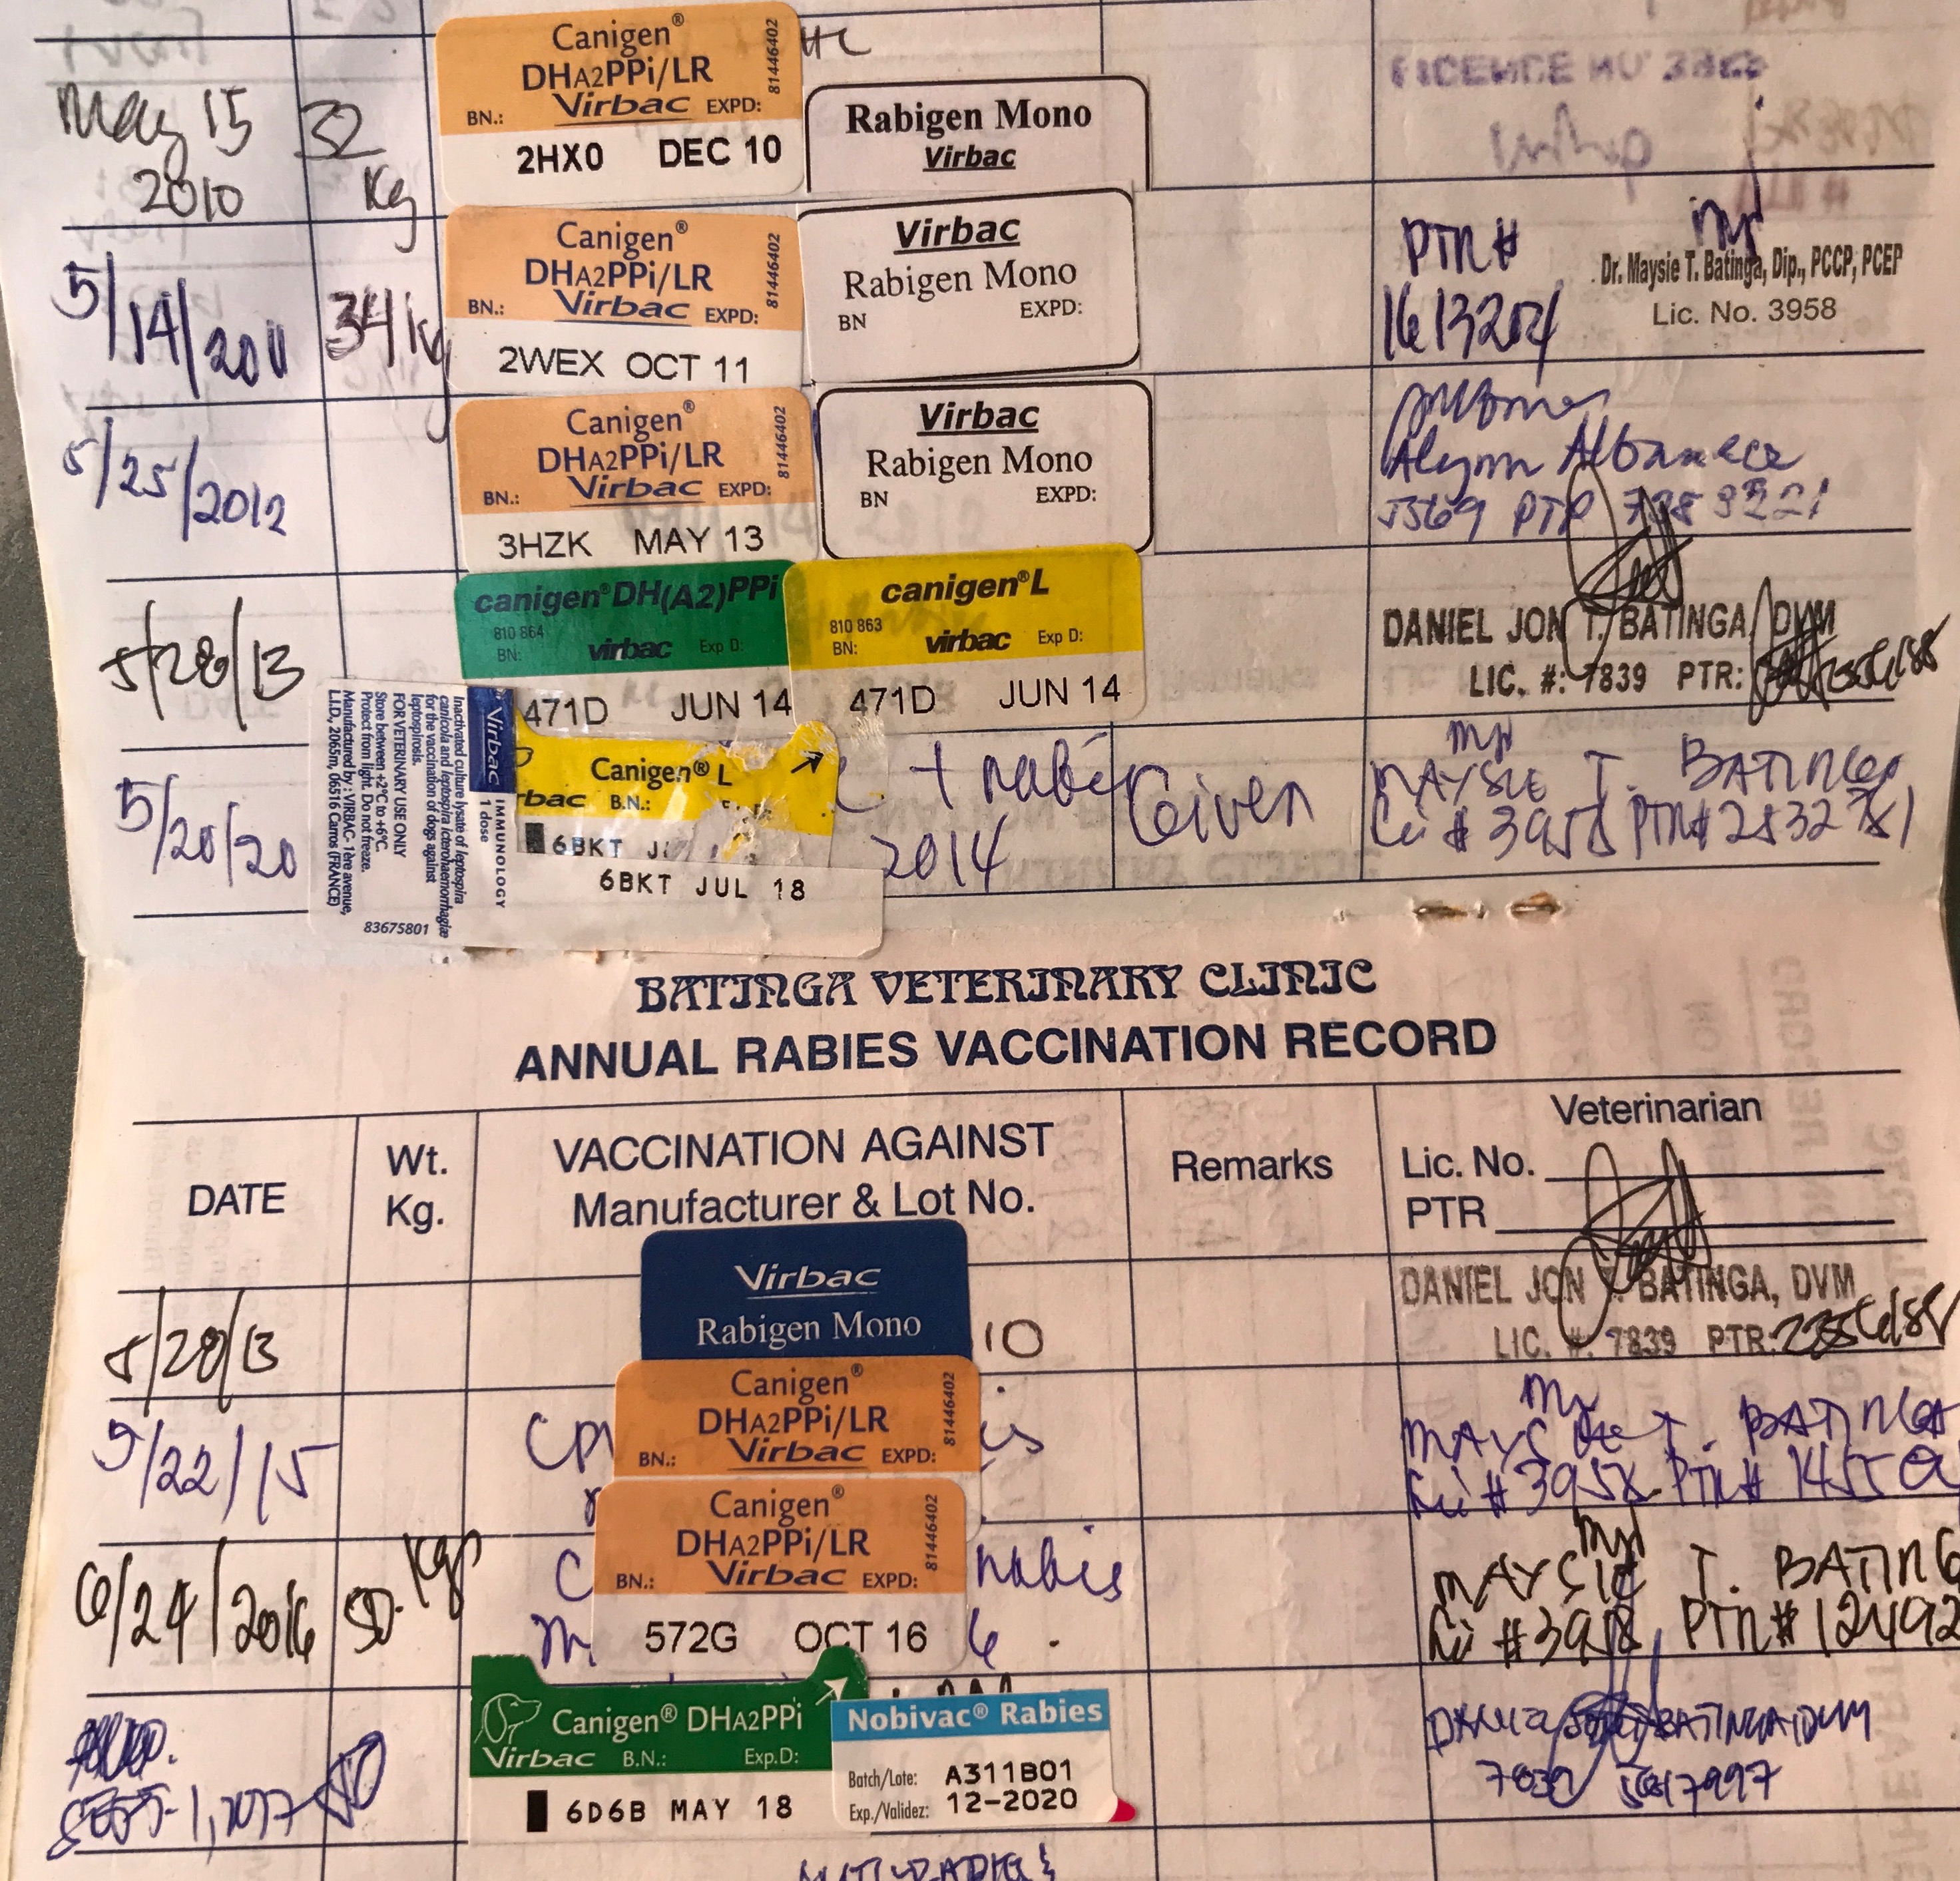 Canigen®
DHA2PPi/LR
81446402
Virbac
BN.: EXPD:
2HX0 DEC 10
Rabigen Mono
Virbac
May 15
2010
32
Kg
5/14/2011
34 kg
Canigen®
DHA2PPi/LR
81446402
Virbac
BN.: EXPD:
2WEX OCT 11
Virbac
Rabigen Mono
BN EXPD:
PTR#
1613204
Dr. Maysie T. Batinga, Dip., PCCP, PCEP
Lic. No. 3958
5/25/2012
Canigen®
DHA2PPi/LR
81446402
Virbac
BN.: EXPD:
3HZK MAY 13
Virbac
Rabigen Mono
BN EXPD:
5/28/13
canigen® DH(A2)PPi
810 864
BN: virbac Exp D:
471D JUN 14
canigen® L
810 863
BN: virbac Exp D:
471D JUN 14
DANIEL JON T. BATINGA, DVM
LIC. #: 7839 PTR:
5/20/20
Inactivated culture lysate of leptospira
canicola and leptospira icterohaemorrhagiae
for the vaccination of dogs against
leptospirosis.
FOR VETERINARY USE ONLY
Store between +2°C to +6°C.
Protect from light. Do not freeze.
Manufactured by : VIRBAC - 1ère avenue,
L.I.D., 2065m, 06516 Carros (FRANCE)
83675801
Virbac IMMUNOLOGY
1 dose
Canigen® L
B.N.:
6BKT
6BKT JUL 18
2014
Given
MAYSIE T. BATINGA
Lic # 3958 PTR# 2832781
BATINGA VETERINARY CLINIC
ANNUAL RABIES VACCINATION RECORD
DATE
Wt.
Kg.
VACCINATION AGAINST
Manufacturer & Lot No.
Remarks
Veterinarian
Lic. No.
PTR
5/28/13
Virbac
Rabigen Mono
10
DANIEL JON T. BATINGA, DVM
LIC. #: 7839 PTR:
5/22/15
Canigen®
DHA2PPi/LR
81446402
Virbac
BN.: EXPD:
T. BATINGA
Lic # 3958 PTR#
6/24/2016
50 kgs
Canigen®
DHA2PPi/LR
81446402
Virbac
BN.: EXPD:
572G OCT 16
rabis
6
MAYSIE T. BATING
Lic #3958 PTR#12492
SEPT-1, 2017
50
Canigen® DHA2PPi
Virbac B.N.: Exp.D:
6D6B MAY 18
Nobivac® Rabies
Batch/Lote: A311B01
Exp./Validez: 12-2020